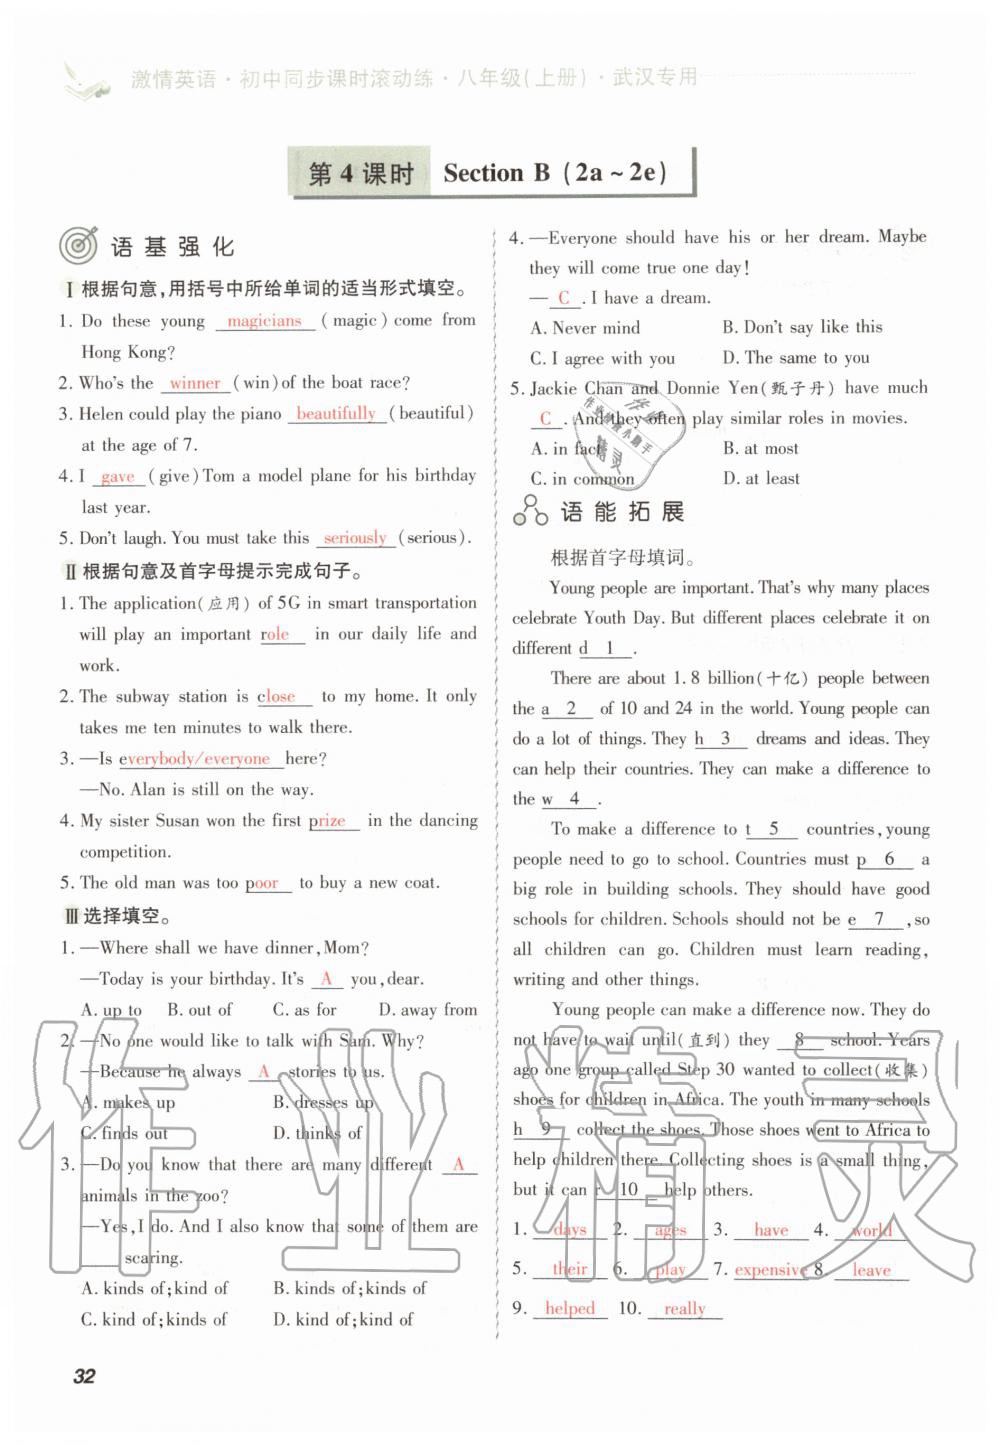 激情英语·初中同步课时滚动练·八年级(上册)·武汉专用
第 4 课时 Section B (2a ~ 2e)
语基强化
Ⅰ 根据句意,用括号中所给单词的适当形式填空。
1. Do these young magicians (magic) come from
Hong Kong?
2. Who's the winner (win) of the boat race?
3. Helen could play the piano beautifully (beautiful)
at the age of 7.
4. I gave (give) Tom a model plane for his birthday
last year.
5. Don't laugh. You must take this seriously (serious).
Ⅱ 根据句意及首字母提示完成句子。
1. The application(应用) of 5G in smart transportation
will play an important role in our daily life and
work.
2. The subway station is close to my home. It only
takes me ten minutes to walk there.
3. —Is everybody/everyone here?
—No. Alan is still on the way.
4. My sister Susan won the first prize in the dancing
competition.
5. The old man was too poor to buy a new coat.
Ⅲ 选择填空。
1. —Where shall we have dinner, Mom?
—Today is your birthday. It's A you, dear.
A. up to B. out of C. as for D. away from
2. —No one would like to talk with Sam. Why?
—Because he always A stories to us.
A. makes up B. dresses up
C. finds out D. thinks of
3. —Do you know that there are many different A
animals in the zoo?
—Yes, I do. And I also know that some of them are
____ scaring.
A. kinds of; kind of B. kinds of; kinds of
C. kind of; kinds of D. kind of; kind of
32
4. —Everyone should have his or her dream. Maybe
they will come true one day!
— C . I have a dream.
A. Never mind B. Don't say like this
C. I agree with you D. The same to you
5. Jackie Chan and Donnie Yen(甄子丹) have much
C . And they often play similar roles in movies.
A. in fact B. at most
C. in common D. at least
语能拓展
根据首字母填词。
Young people are important. That's why many places
celebrate Youth Day. But different places celebrate it on
different d 1 .
There are about 1.8 billion(十亿) people between
the a 2 of 10 and 24 in the world. Young people can
do a lot of things. They h 3 dreams and ideas. They
can help their countries. They can make a difference to
the w 4 .
To make a difference to t 5 countries, young
people need to go to school. Countries must p 6 a
big role in building schools. They should have good
schools for children. Schools should not be e 7 , so
all children can go. Children must learn reading,
writing and other things.
Young people can make a difference now. They do
not have to wait until(直到) they 8 school. Years
ago one group called Step 30 wanted to collect(收集)
shoes for children in Africa. The youth in many schools
h 9 collect the shoes. Those shoes went to Africa to
help children there. Collecting shoes is a small thing,
but it can r 10 help others.
1. days 2. ages 3. have 4. world
5. their 6. play 7. expensive 8. leave
9. helped 10. really
作业精灵